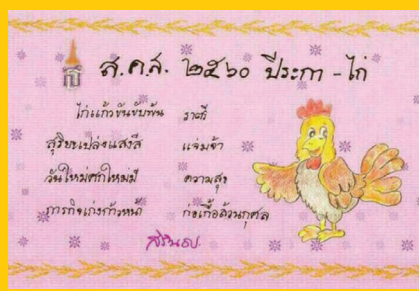 ส.ค.ส. ๒๕๖๐ ปีระกา - ไก่
ไก่แก้วขันขับพ้น ราตรี
สุริยนเปล่งแสงสี แจ่มจ้า
วันใหม่ศกใหม่มี ความสุข
ภารกิจเก่งก้าวหน้า ก่อเกื้อล้วนกุศล
สิรินธร